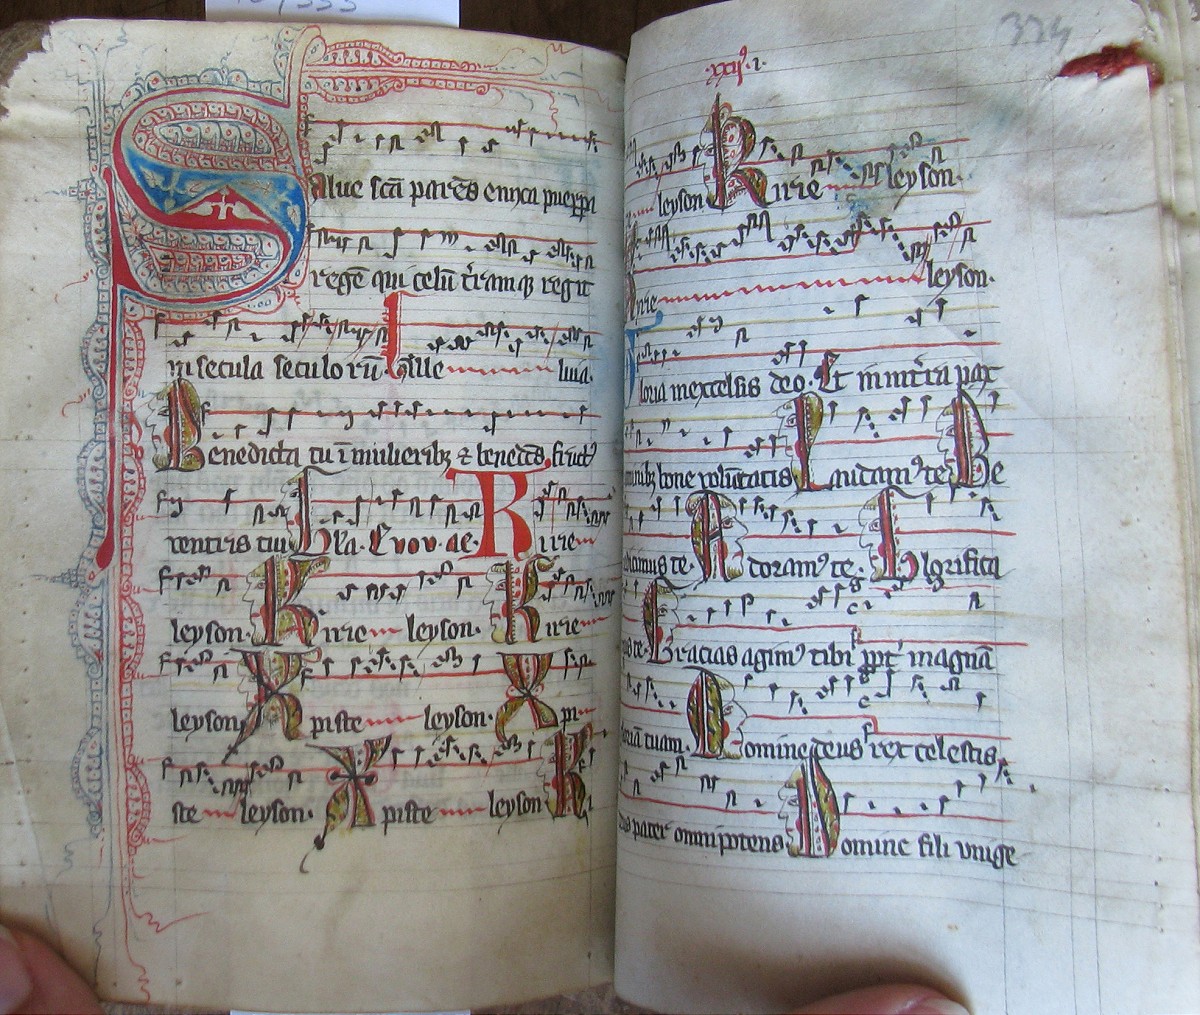 Salue sca parēs enixa puerpa
regē qui celū t'ramq regit
in secula seculorū. Alle luia.
Benedicta tu ī mulieribꝫ ⁊ benedcs fruct⁹
ventris tui. Gla. Euov ae. Kirie
leyson. Kirie leyson. Kirie
leyson. Xpiste leyson. Xpi
ste leyson. Xpiste leyson Ki
324
leyson Kirie leyson.
Kirie leyson.
Gloria in excelsis deo. Et in t'ra pax
bone volūtatis Laudam⁹ te Be
te. Adoram⁹ te. Glorifica
te. Gracias agim⁹ tibi ppt' magnā
tuam. Domine deus rex celestis
pater omnipotens. Domine fili vnige